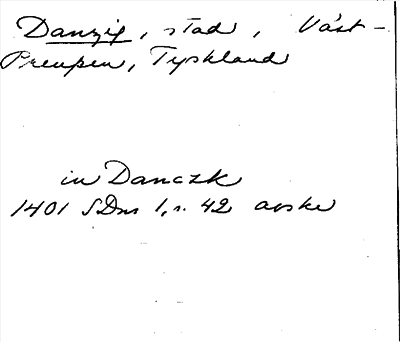 Danzig, stad, Väst-
Preussen, Tyskland
in Danczk
1401 SDns 1, s. 42 avskr